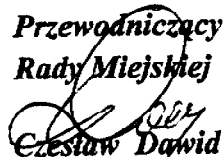 Przewodniczący
Rady Miejskiej
Czesław Dawid